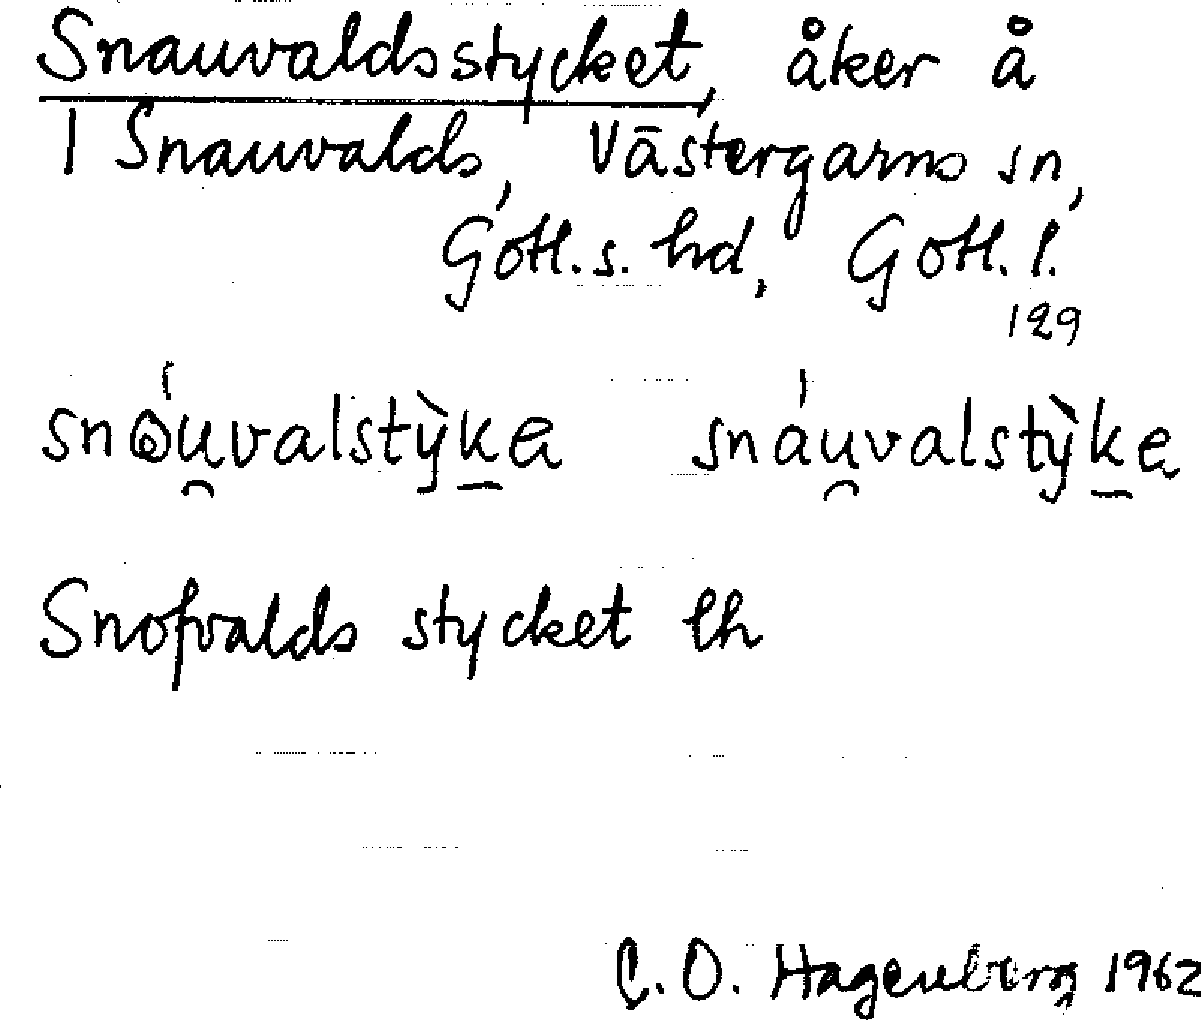 Snauvaldsstycket, åker å
1 Snauvalds, Västergarns sn,
Gotl. s. hd, Gotl. l.
129
snåu̯valstỳk̲e snáu̯valstỳk̲e
Snofvalds stycket lh
C. O. Hagenberg 1962